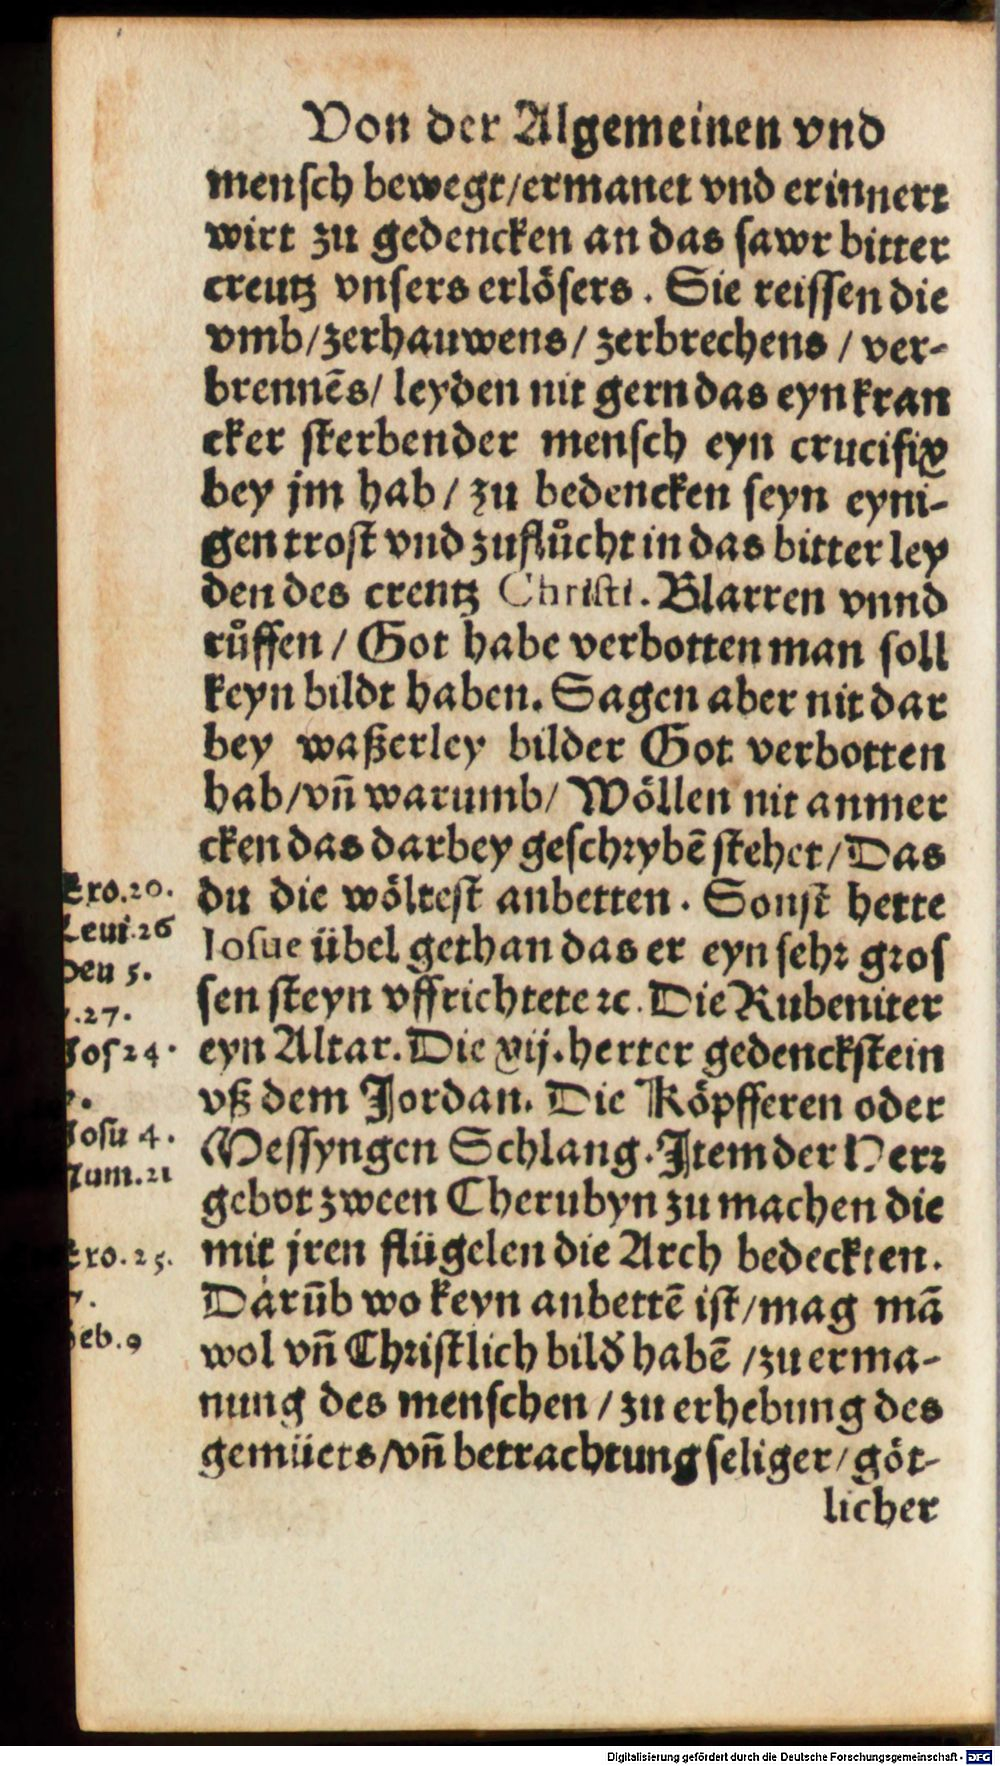 Von der Algemeinen vnd
mensch bewegt/ermanet vnd erinnert
wirt zu gedencken an das sawr bitter
creutz vnsers erlösers. Sie reissen die
vmb/zerhauwens/ zerbrechens / ver-
brennēs/ leyden nit gern das eyn kran
cker sterbender mensch eyn crucifix
bey jm hab/ zu bedencken seyn eyni-
gen trost vnd zuflůcht in das bitter ley
den des creutz Christi. Blarren vnnd
růffen/ Got habe verbotten man soll
keyn bildt haben. Sagen aber nit dar
bey waßerley bilder Got verbotten
hab/vn̄ warumb/ Wöllen nit anmer
cken das darbey geschrybē stehet/Das
du die wöltest anbetten. Sonst hette
Iosue übel gethan das er eyn sehr gros
sen steyn vffrichtete ꝛc. Die Rubeniter
eyn Altar. Die xij. herter gedenckstein
vß dem Jordan. Die Köpfferen oder
Messyngen Schlang. Item der Herr
gebot zween Cherubyn zu machen die
mit jren flügelen die Arch bedeckten.
Darūb wo keyn anbettē ist/mag mā
wol vn̄ Christlich bild̕ habē /zu erma-
nung des menschen/ zu erhebung des
gemüets/vn̄ betrachtung seliger/göt-
licher
Exo.20.
Leui.26
Deu 5.
.27.
Jos 24.
Josu 4.
Num.21
Exo.25.
Heb.9
Digitalisierung gefördert durch die Deutsche Forschungsgemeinschaft - DFG